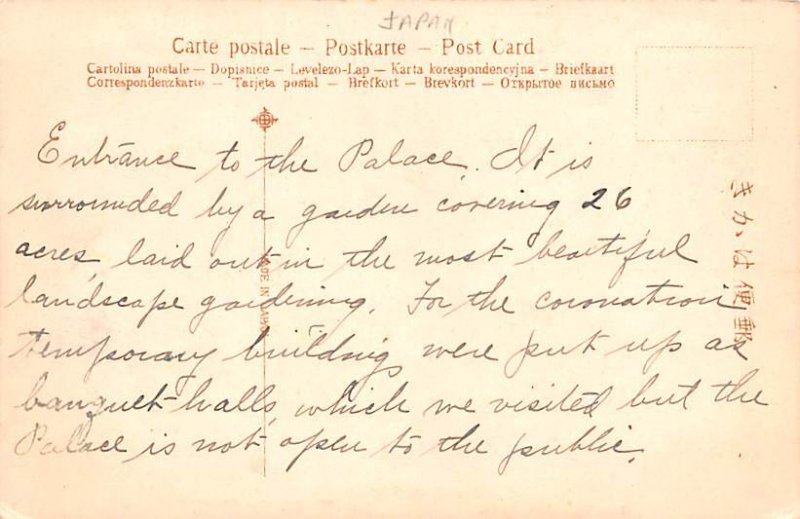 JAPAN
Carte postale — Postkarte — Post Card
Cartolina postale — Dopisnice — Levelezo-Lap — Karta korespondencyjna — Briefkaart
Correspondenzkarte — Tarjeta postal — Brefkort — Brevkort — Открытое письмо
Entrance to the Palace. It is
surrounded by a garden covering 26
acres, laid out in the most beautiful
landscape gardening. For the coronation
temporary buildings were put up as
banquet-halls, which we visited but the
Palace is not open to the public.
MADE IN JAPAN
きかは便郵